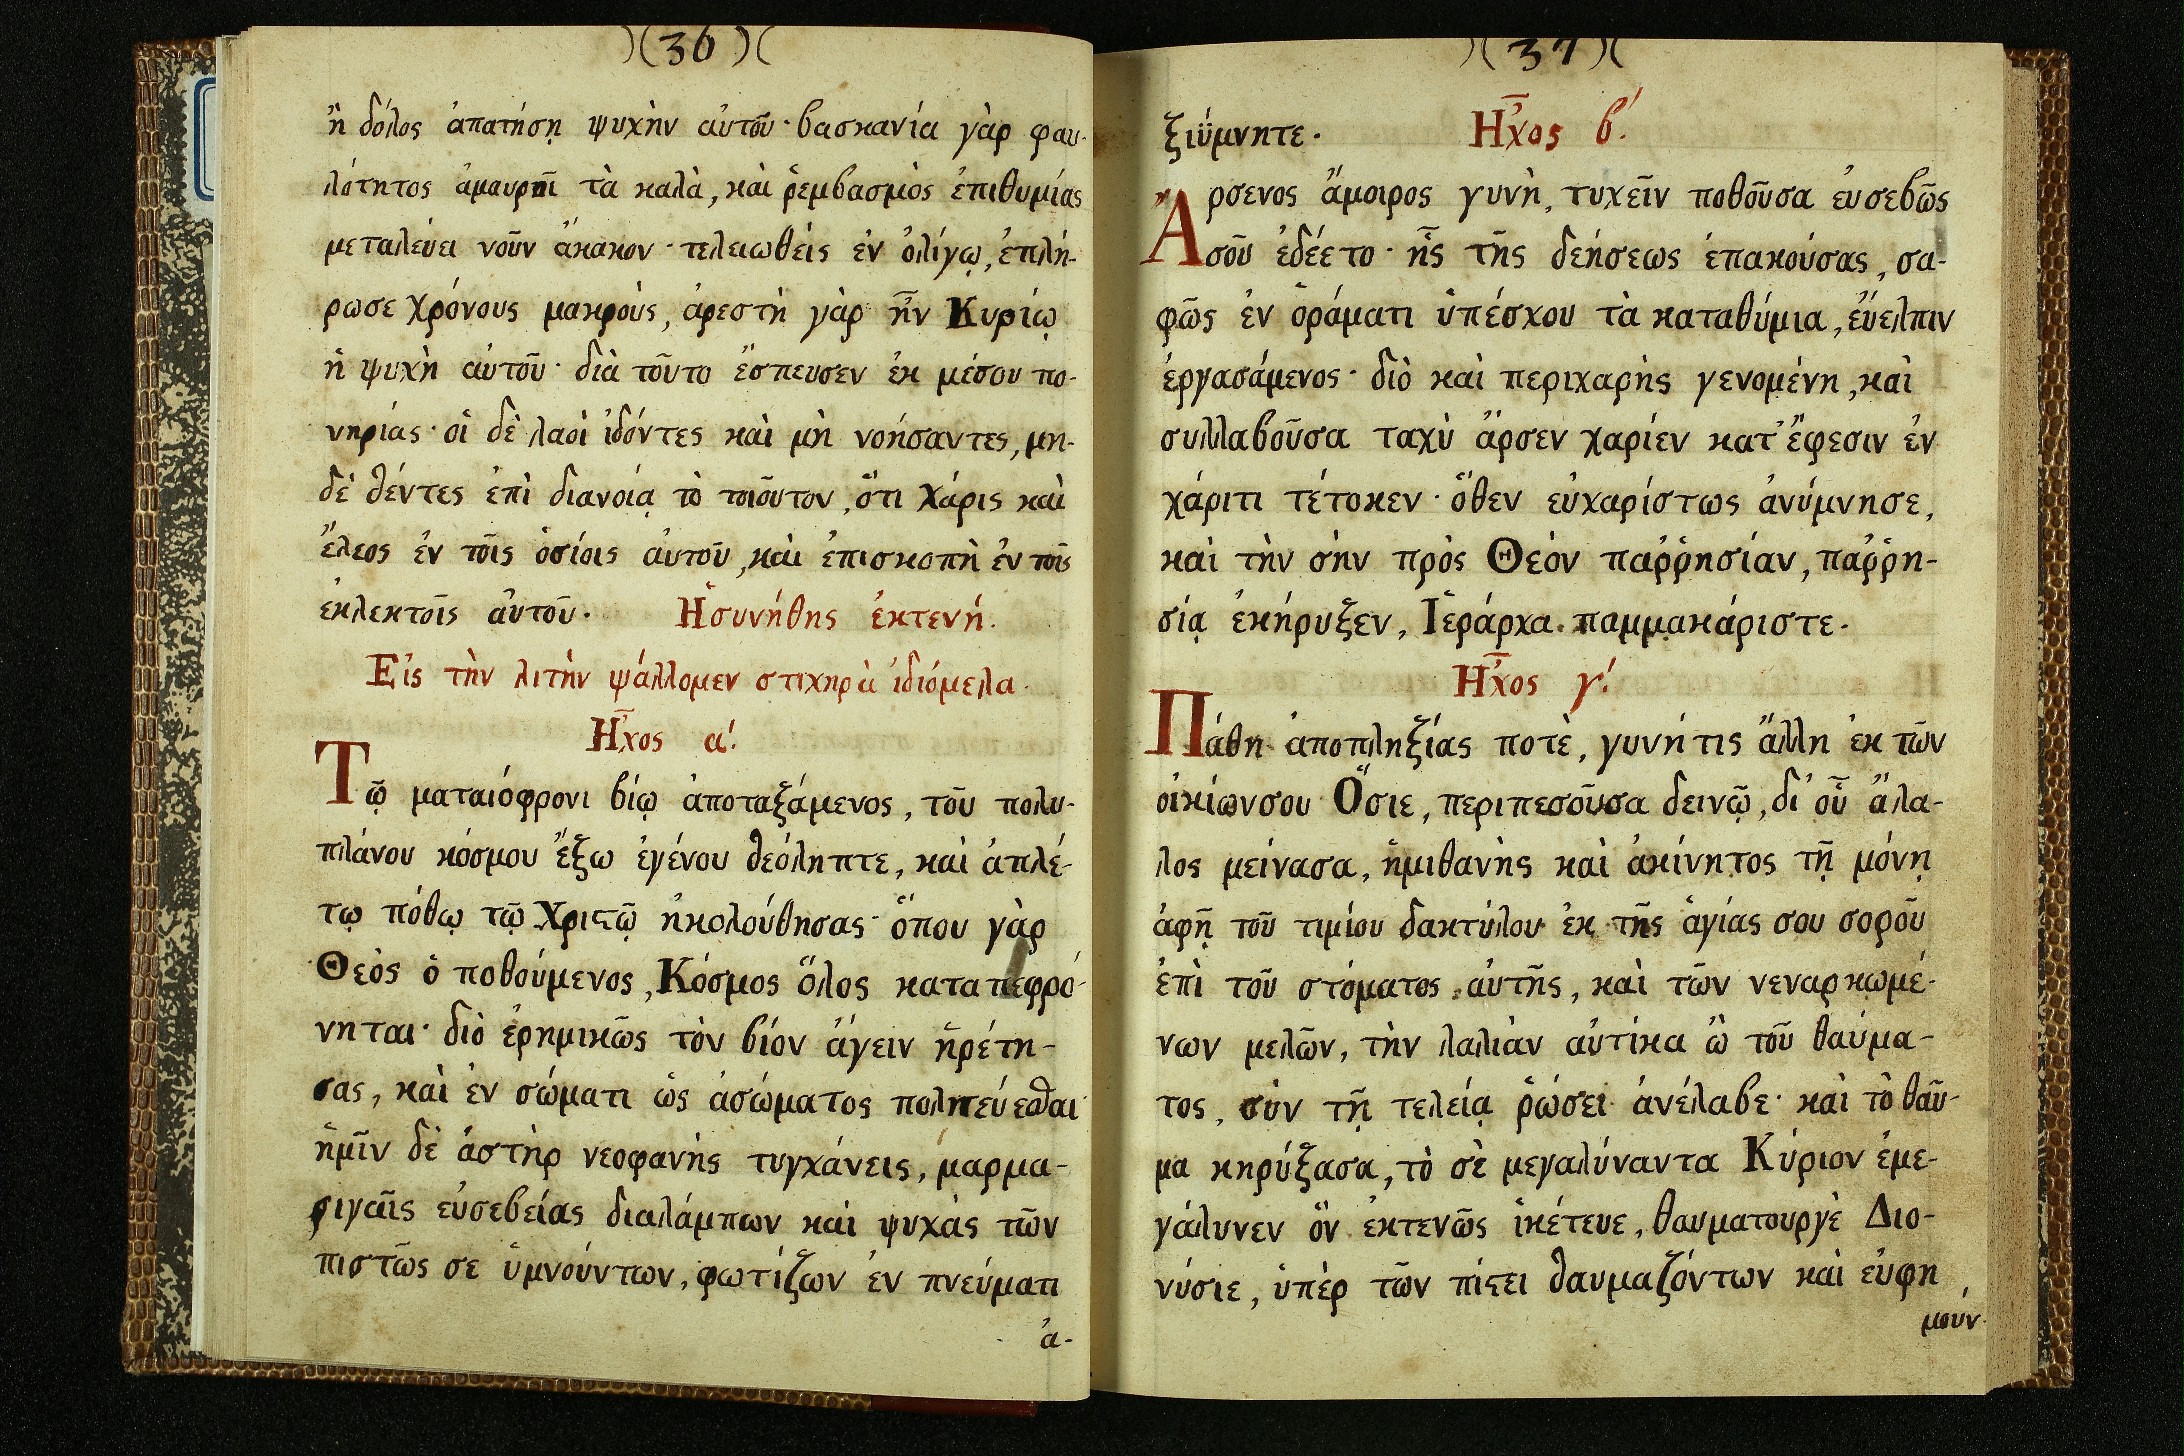 )(36)(
ἢ δόλος ἀπατήσῃ ψυχὴν αὐτοῦ· βασκανία γὰρ φαυ-
λότητος ἀμαυροῖ τὰ καλὰ, καὶ ῥεμβασμὸς ἐπιθυμίας
μεταλεύει νοῦν ἄκακον· τελειωθεὶς ἐν ὀλίγῳ, ἐπλή-
ρωσε χρόνους μακρούς, ἀρεστὴ γὰρ ἦν Κυρίῳ
ἡ ψυχὴ αὐτοῦ· διὰ τοῦτο ἔσπευσεν ἐκ μέσου πο-
νηρίας· οἱ δὲ λαοὶ ἰδόντες καὶ μὴ νοήσαντες, μη-
δὲ θέντες ἐπὶ διανοίᾳ τὸ τοιοῦτον, ὅτι χάρις καὶ
ἔλεος ἐν τοῖς ὁσίοις αὐτοῦ, καὶ ἐπισκοπὴ ἐν τοῖς
ἐκλεκτοῖς αὐτοῦ. Ἡσυνήθης ἐκτενή.
Εἰς τὴν λιτὴν ψάλλομεν στιχηρὰ ἰδιόμελα.
Ἦχος α΄.
Τῷ ματαιόφρονι βίῳ ἀποταξάμενος, τοῦ πολυ-
πλάνου κόσμου ἔξω ἐγένου θεόληπτε, καὶ ἀπλέ-
τῳ πόθῳ τῷ Χριστῷ ἠκολούθησας· ὅπου γὰρ
Θεὸς ὁ ποθούμενος, Κόσμος ὅλος καταπεφρό-
νηται· διὸ ἐρημικῶς τὸν βίον ἄγειν ᾑρέτη-
σας, καὶ ἐν σώματι ὡς ἀσώματος πολιτεύεσθαι·
ἡμῖν δὲ ἀστὴρ νεοφανὴς τυγχάνεις, μαρμα-
ριγαῖς εὐσεβείας διαλάμπων καὶ ψυχὰς τῶν
πιστῶς σε ὑμνούντων, φωτίζων ἐν πνεύματι
ἀ-
)(37)(
ξιΰμνητε. Ἦχος β΄.
Ἄρσενος ἄμοιρος γυνὴ, τυχεῖν ποθοῦσα εὐσεβῶς
σοῦ ἐδέετο· ἧς τῆς δεήσεως ἐπακούσας, σα-
φῶς ἐν ὁράματι ὑπέσχου τὰ καταθύμια, εὔελπιν
ἐργασάμενος· διὸ καὶ περιχαρὴς γενομένη, καὶ
συλλαβοῦσα ταχὺ ἄρσεν χαρίεν κατ᾽ ἔφεσιν ἐν
χάριτι τέτοκεν· ὅθεν εὐχαρίστως ἀνύμνησε,
καὶ τὴν σὴν πρὸς Θεὸν παῤῥησίαν, παῤῥη-
σίᾳ ἐκήρυξεν, Ἱεράρχα παμμακάριστε.
Ἦχος γ΄.
Πάθη ἀποπληξίας ποτὲ, γυνήτις ἄλλη ἐκ τῶν
οἰκίωνσου Ὅσιε, περιπεσοῦσα δεινῷ, δι᾽ οὗ ἄλα-
λος μείνασα, ἡμιθανὴς καὶ ἀκίνητος τῇ μόνῃ
ἁφῇ τοῦ τιμίου δακτύλου ἐκ τῆς ἁγίας σου σοροῦ
ἐπὶ τοῦ στόματος αὐτῆς, καὶ τῶν νεναρκωμέ-
νων μελῶν, τὴν λαλιὰν αὐτίκα ὢ τοῦ θαύμα-
τος, σὺν τῇ τελείᾳ ῥώσει ἀνέλαβε· καὶ τὸ θαῦ-
μα κηρύξασα, τὸ σὲ μεγαλύναντα Κύριον ἐμε-
γάλυνεν ὃν ἐκτενῶς ἱκέτευε, θαυματουργὲ Διο-
νύσιε, ὑπὲρ τῶν πίστει θαυμαζόντων καὶ εὐφη
μούν-